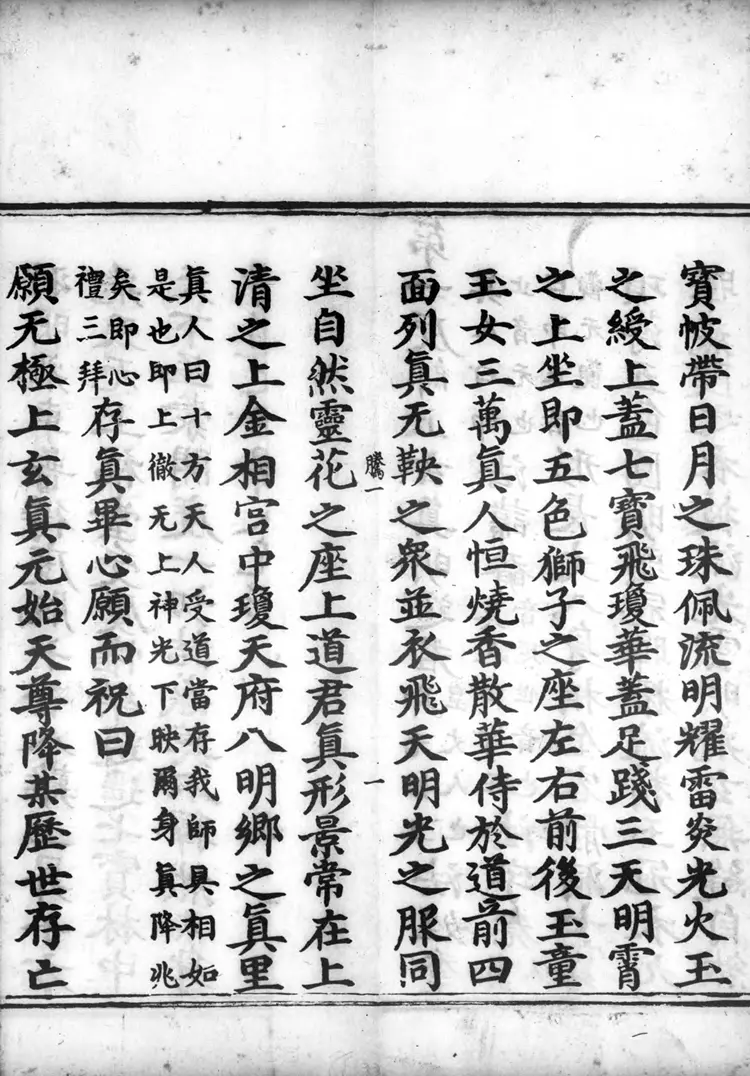 寶帔帶日月之珠佩流明耀雷炎光火玉
之綬上蓋七寶飛瓊華蓋足踐三天明霄
之上坐即五色獅子之座左右前後玉童
玉女三萬真人恒燒香散華侍於道前四
面列真无鞅之衆並衣飛天明光之服同
騰一
一
坐自然靈花之座上道君真形景常在上
清之上金相宮中瓊天府八明鄉之真里
真人曰十方天人受道當存我師具相如
是也即上徹无上神光下映爾身真降兆
矣即心
禮三拜
存真畢心願而祝曰
願无極上玄真元始天尊降某歷世存亡